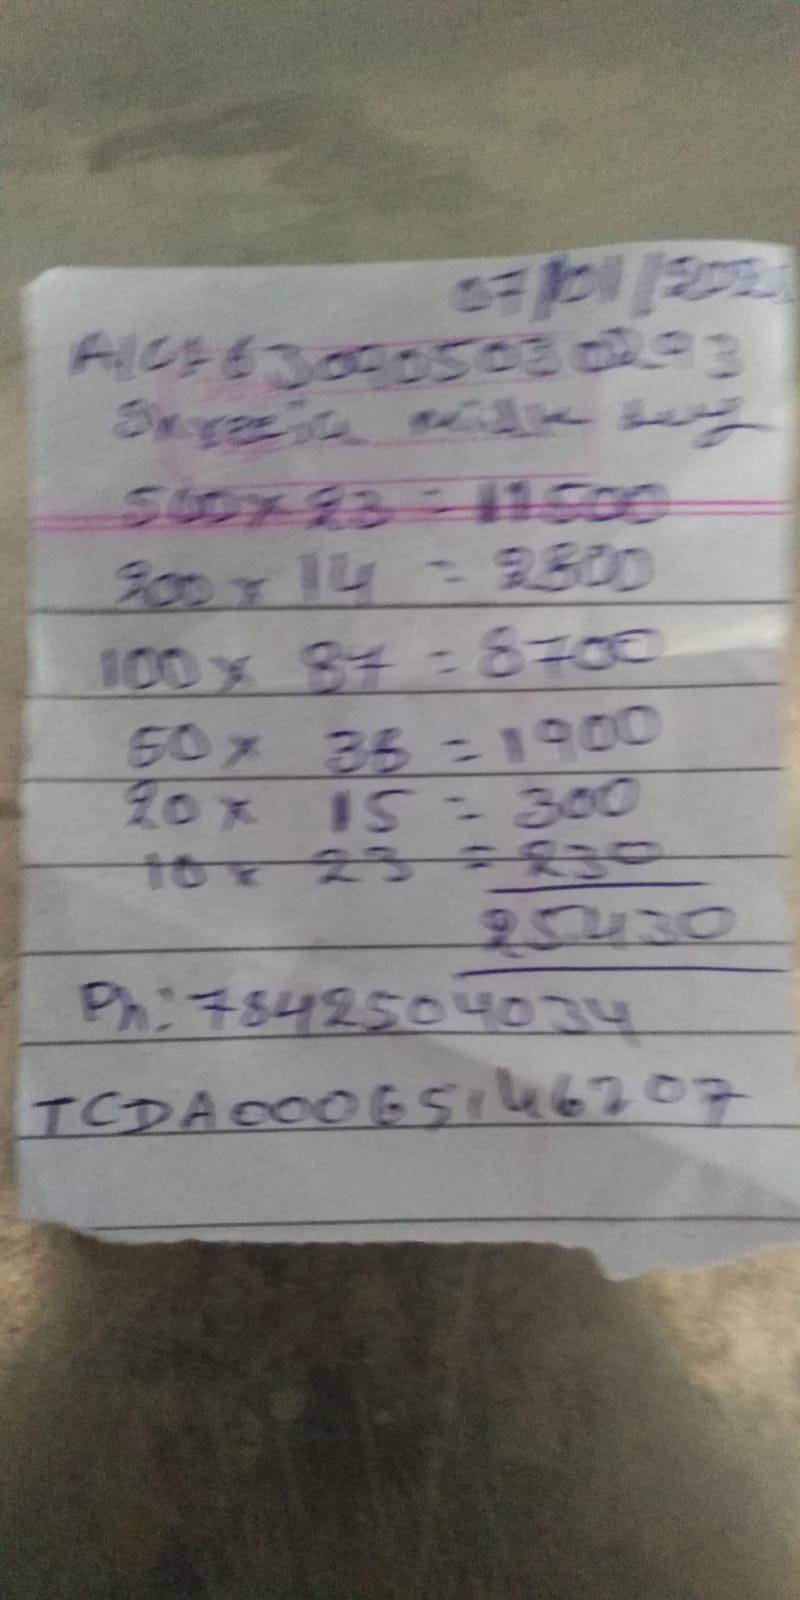 07/01/202
A/C 7630905030293
milk
500 x 23 = 11500
200 x 14 = 2800
100 x 87 = 8700
50 x 38 = 1900
20 x 15 = 300
10 x 23 = 230
25430
Ph: 7842504034
TCDA00065146207